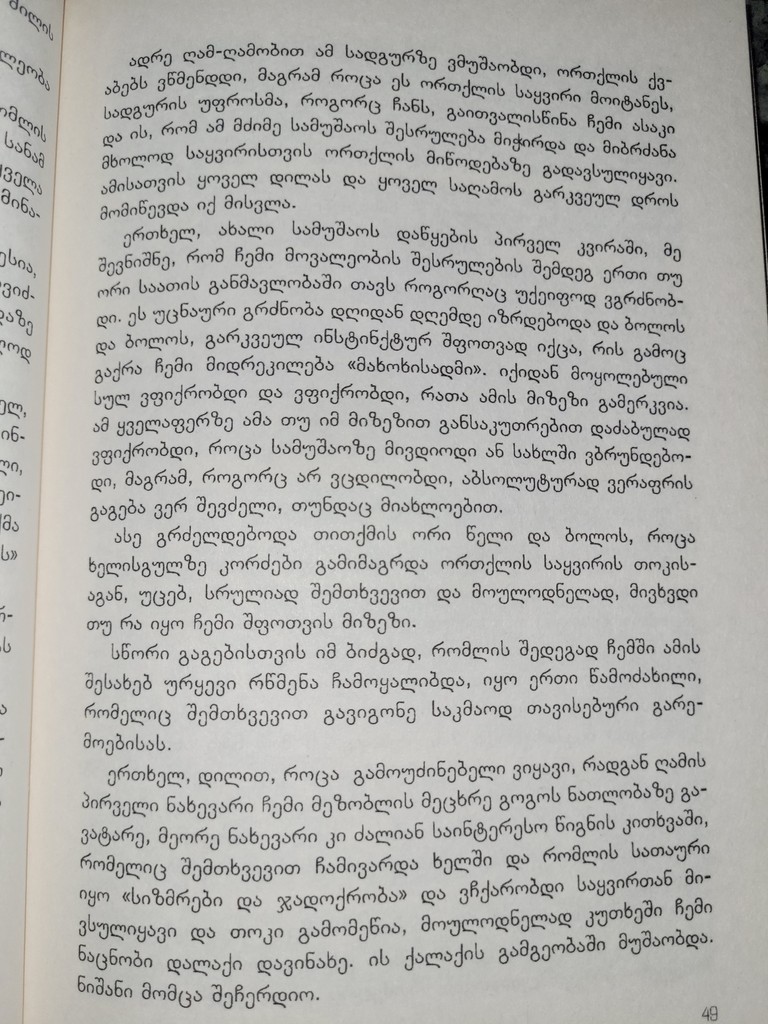 ძილის
ლეობა
ომლის
სანამ
ყველა
მინა-
ესია,
ვიძ-
დაზე
ოდ
ელ,
ინ-
ლი,
ეი-
მა
ს»
რ-
ას
ა
ადრე ღამ-ღამობით ამ სადგურზე ვმუშაობდი, ორთქლის ქვ-
აბებს ვწმენდდი, მაგრამ როცა ეს ორთქლის საყვირი მოიტანეს,
სადგურის უფროსმა, როგორც ჩანს, გაითვალისწინა ჩემი ასაკი
და ის, რომ ამ მძიმე სამუშაოს შესრულება მიჭირდა და მიბრძანა
მხოლოდ საყვირისთვის ორთქლის მიწოდებაზე გადავსულიყავი.
ამისათვის ყოველ დილას და ყოველ საღამოს გარკვეულ დროს
მომიწევდა იქ მისვლა.
ერთხელ, ახალი სამუშაოს დაწყების პირველ კვირაში, მე
შევნიშნე, რომ ჩემი მოვალეობის შესრულების შემდეგ ერთი თუ
ორი საათის განმავლობაში თავს როგორღაც უქეიფოდ ვგრძნობ-
დი. ეს უცნაური გრძნობა დღიდან დღემდე იზრდებოდა და ბოლოს
და ბოლოს, გარკვეულ ინსტინქტურ შფოთვად იქცა, რის გამოც
გაქრა ჩემი მიდრეკილება «მახოხისადმი». იქიდან მოყოლებული
სულ ვფიქრობდი და ვფიქრობდი, რათა ამის მიზეზი გამერკვია.
ამ ყველაფერზე ამა თუ იმ მიზეზით განსაკუთრებით დაძაბულად
ვფიქრობდი, როცა სამუშაოზე მივდიოდი ან სახლში ვბრუნდებო-
დი, მაგრამ, როგორც არ ვცდილობდი, აბსოლუტურად ვერაფრის
გაგება ვერ შევძელი, თუნდაც მიახლოებით.
ასე გრძელდებოდა თითქმის ორი წელი და ბოლოს, როცა
ხელისგულზე კორძები გამიმაგრდა ორთქლის საყვირის თოკის-
აგან, უცებ, სრულიად შემთხვევით და მოულოდნელად, მივხვდი
თუ რა იყო ჩემი შფოთვის მიზეზი.
სწორი გაგებისთვის იმ ბიძგად, რომლის შედეგად ჩემში ამის
შესახებ ურყევი რწმენა ჩამოყალიბდა, იყო ერთი წამოძახილი,
რომელიც შემთხვევით გავიგონე საკმაოდ თავისებური გარე-
მოებისას.
ერთხელ, დილით, როცა გამოუძინებელი ვიყავი, რადგან ღამის
პირველი ნახევარი ჩემი მეზობლის მეცხრე გოგოს ნათლობაზე გა-
ვატარე, მეორე ნახევარი კი ძალიან საინტერესო წიგნის კითხვაში,
რომელიც შემთხვევით ჩამივარდა ხელში და რომლის სათაური
იყო «სიზმრები და ჯადოქრობა» და ვჩქარობდი საყვირთან მი-
ვსულიყავი და თოკი გამომეწია, მოულოდნელად კუთხეში ჩემი
ნაცნობი დალაქი დავინახე. ის ქალაქის გამგეობაში მუშაობდა.
ნიშანი მომცა შეჩერდიო.
49